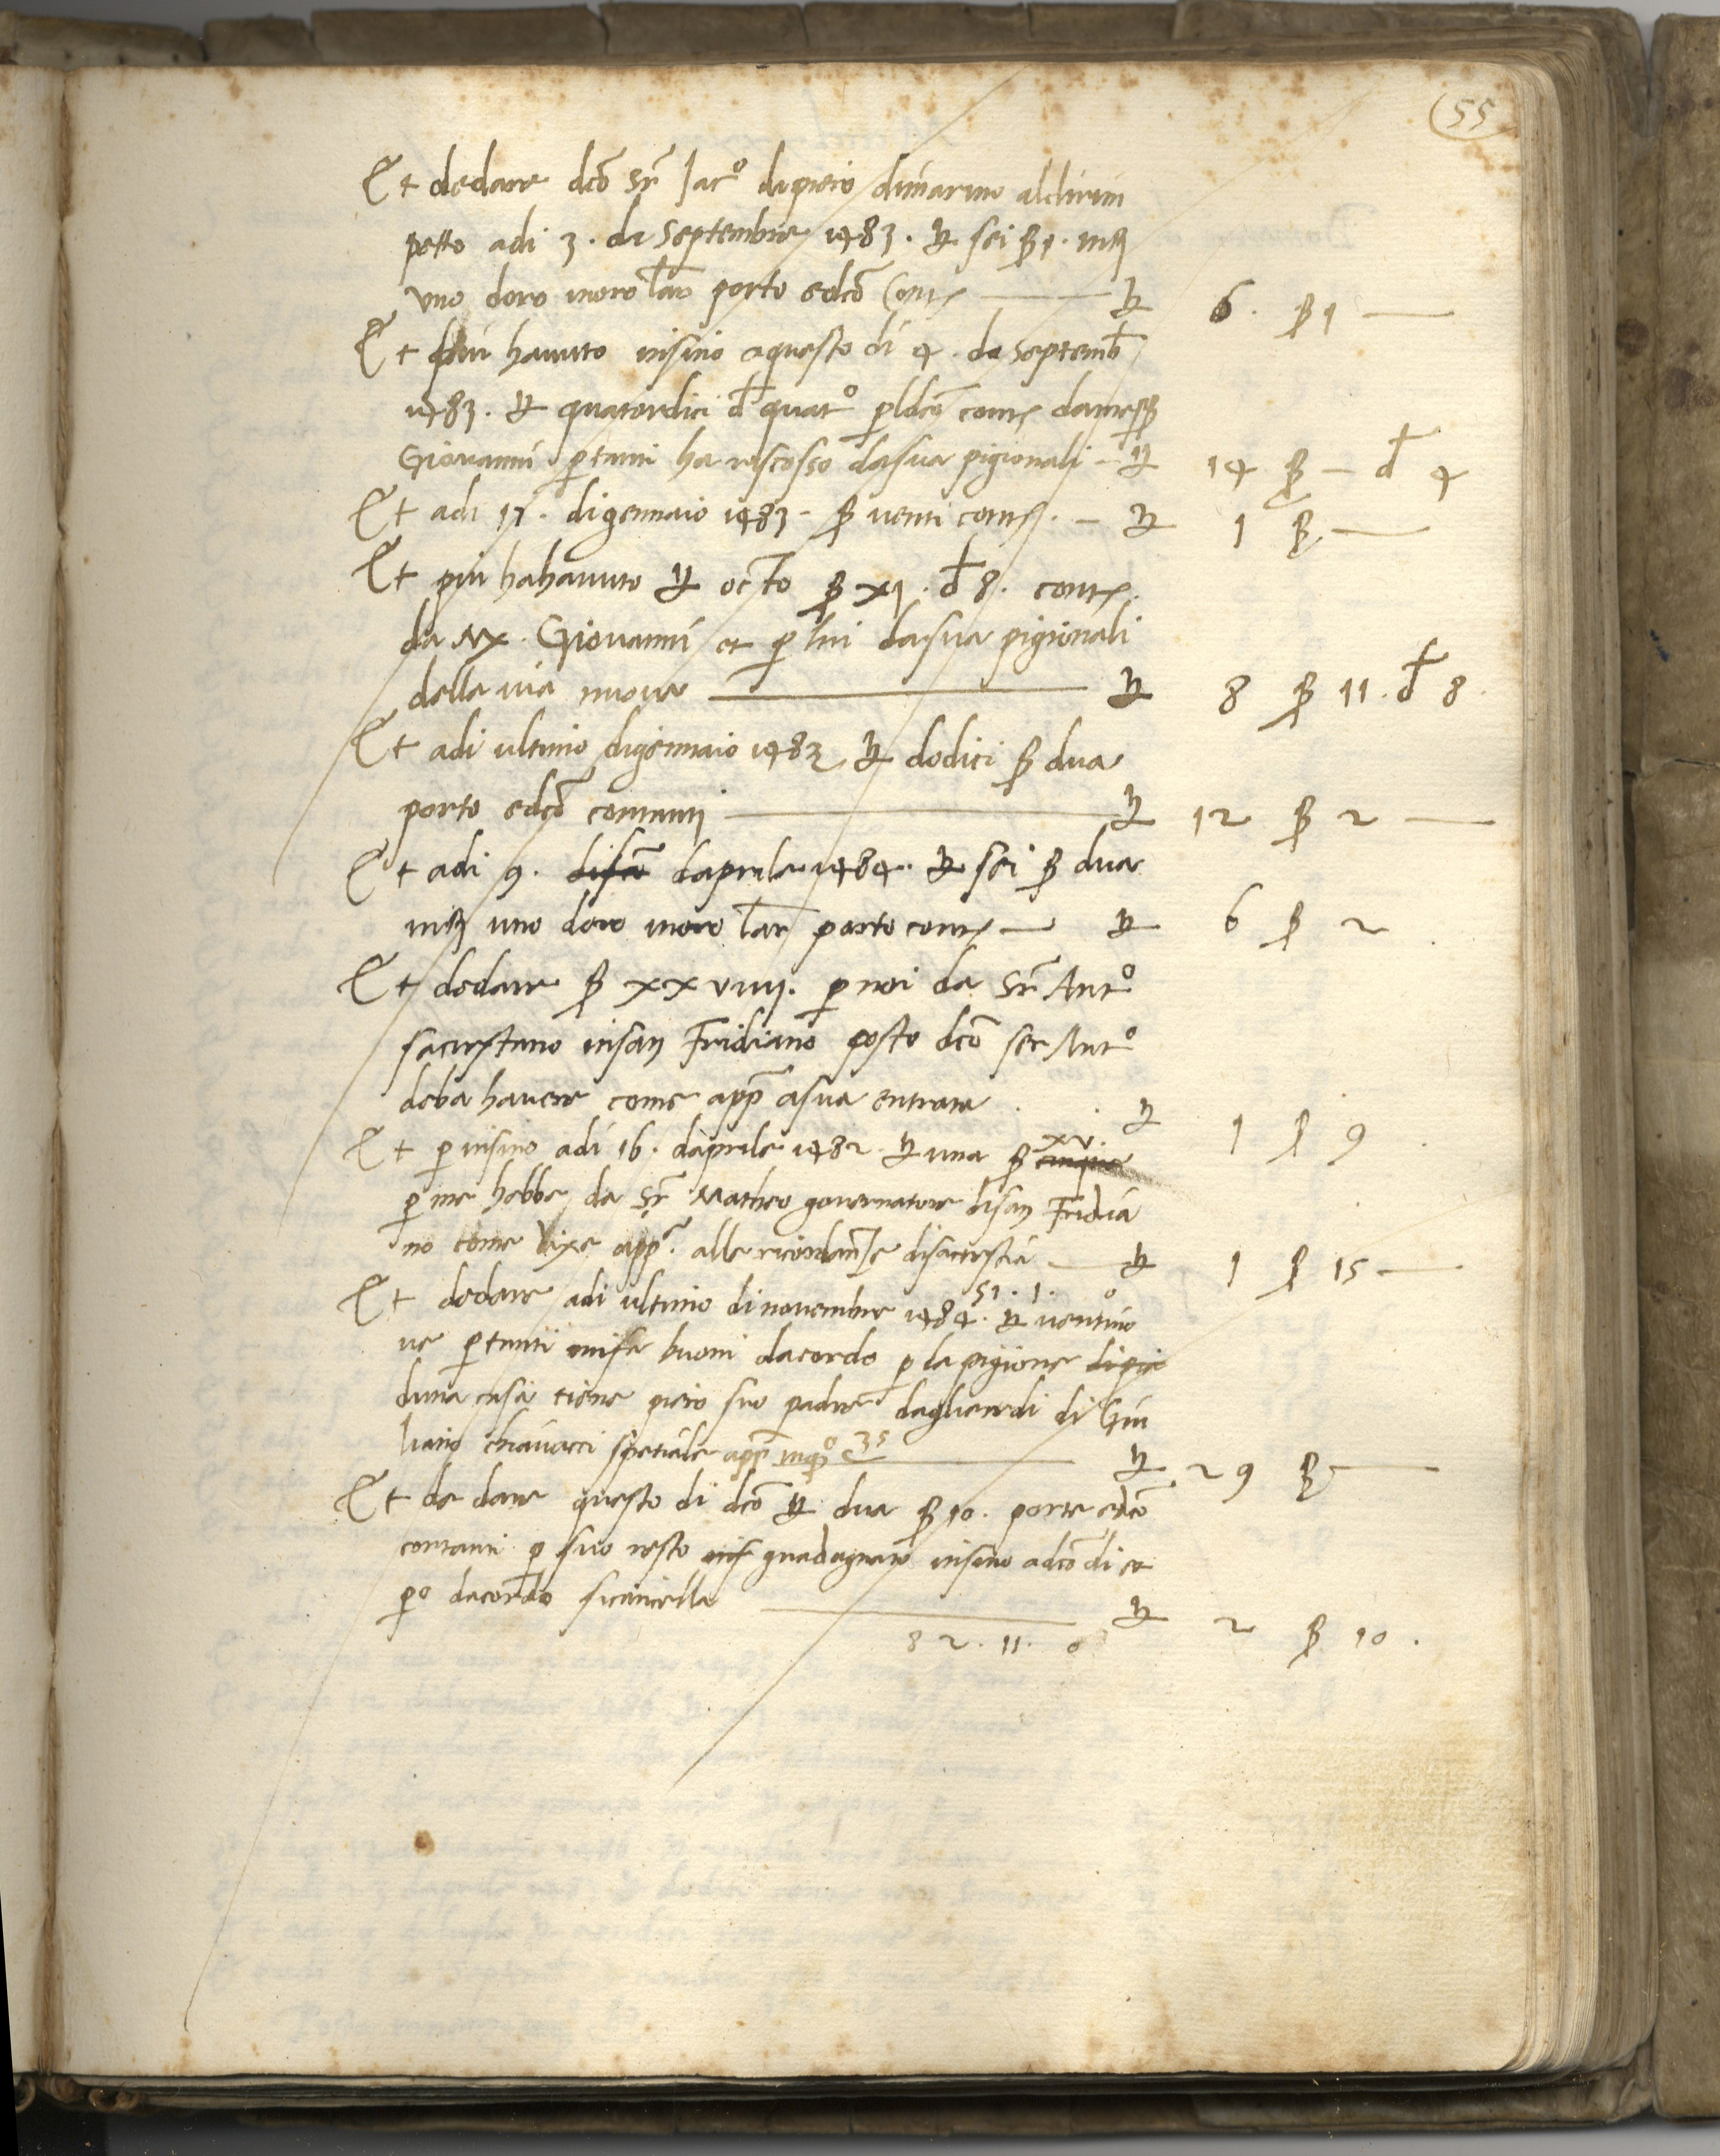 55
Et dedare dcō Sr̄ Jacº dipiero dimarino aldirim
petto adi 3. di Septembre 1483. ℔ sei ß 1.
uno doro inoro lar porto edcō Cont
℔ 6. ß 1 —
Et piu havuto insino aquesto di 4. de Septemb
1483. ℔ quatordici đ quatº p ldcō cont damess
Giovanni p tanti ha riscosso dasua pigionali – ℔ 14 ß – đ 4
Et adi 17. digennaio 1483 – ß venti cont. – ℔ 1 ß —
Et piu hahavuto ℔ octo ß xj. đ 8. cont.
da Mx. Giovanni et p lui dasua pigionali
della via nuova — ℔ 8 ß 11. đ 8.
Et adi ultimo digennaio 1483 ℔ dodici ß dua
porto edcō contanti — ℔ 12 ß 2 —
Et adi 9. daprile 1484. ℔ sei ß dua
uno doro inoro lar porto cont — ℔ 6 ß 2
Et dedare ß xxviiij. p noi da Sr̄ Antº
sacrestano insan Fridiano posto dcō ser Antº
deba havere come app asua entrata . . ℔ 1 ß 9
Et p insino adi 16. daprile 1482. ℔ una ß xv.
p me hebbe da Sr̄ Matheo governatore disan Fridia
no come app. alle ricordanze disacrestia — ℔ 1 ß 15 —
51. 1.
Et dedare adi ultimo dinovembre 1484. ℔ ventino
ve p tanti buoni dacordo p la pigione dipie
duna casa tiene piero suo padre daglieredi di Giu
liano chiavacci spetiale app inqº c 35 — ℔ 29 ß —
Et de dare questo di dcō ℔ dua ß 10. porto edcō
contanti p suo resto guadagnato insino adcō di et
pº dacordo sicancella — ℔ 2 ß 10.
82. 11. 0